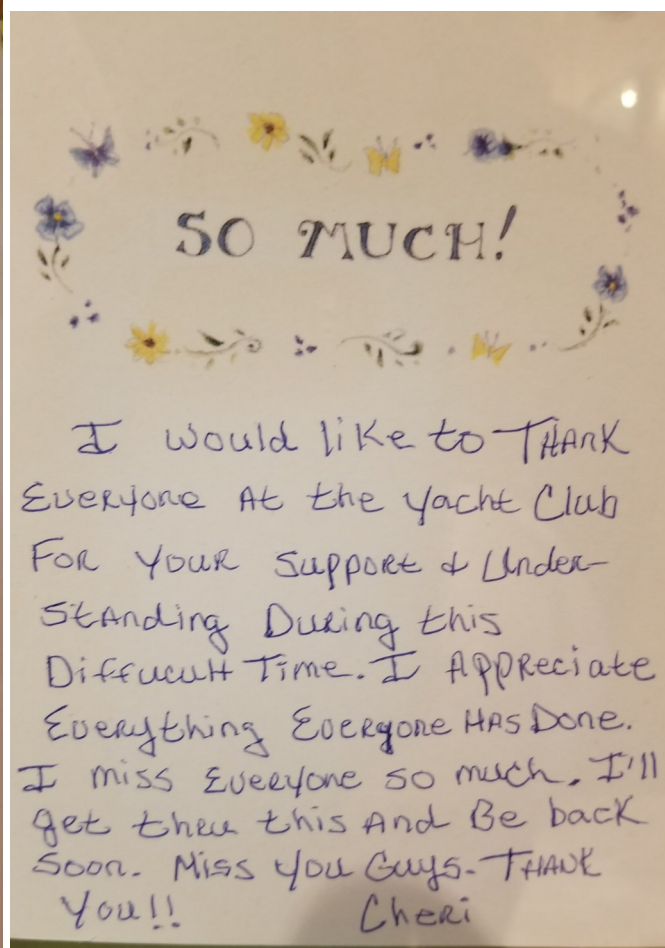 SO MUCH!
I would like to THANK
Everyone At the Yacht Club
FOR YOUR Support & Under-
Standing During this
Diffucult Time. I Appreciate
Everything Everyone HAS Done.
I miss Everyone so much. I'll
get thru this And Be back
Soon. Miss you Guys. THANK
You!! Cheri